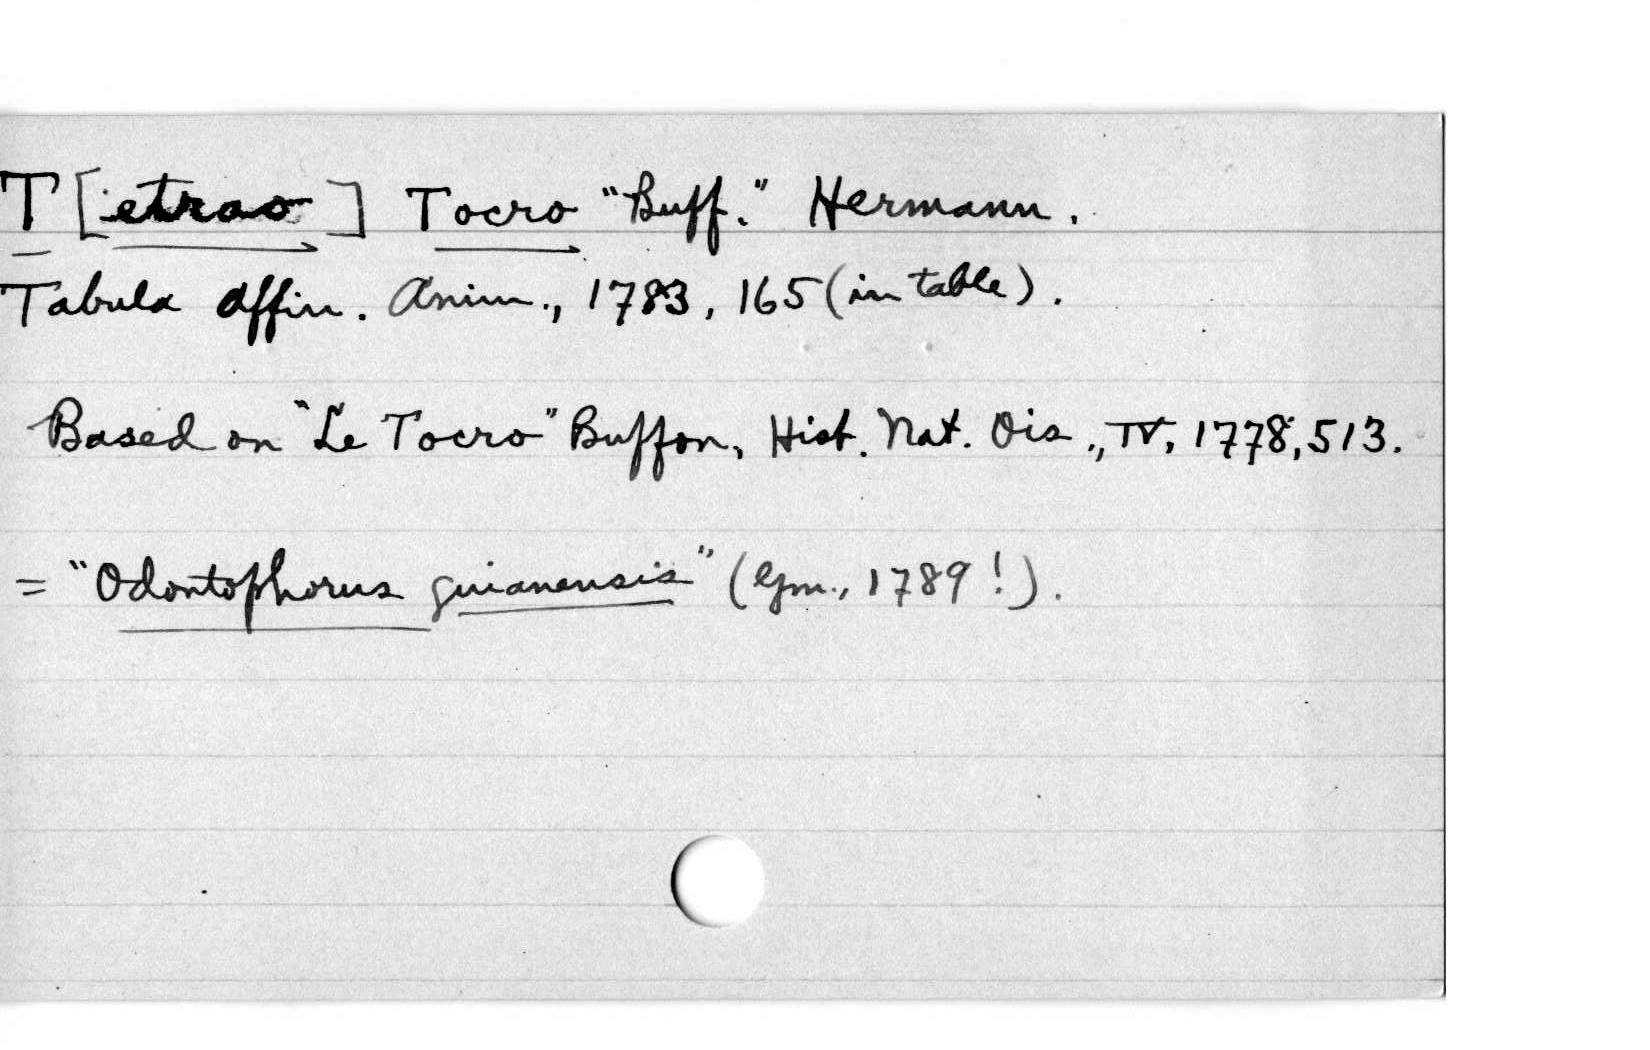 T[etrao] Tocro "Buff." Hermann.
Tabula affin. Anim., 1783, 165 (in table).
Based on "Le Tocro" Buffon, Hist. Nat. Ois., IV, 1778, 513.
= "Odontophorus guianensis" (Gm., 1789!).